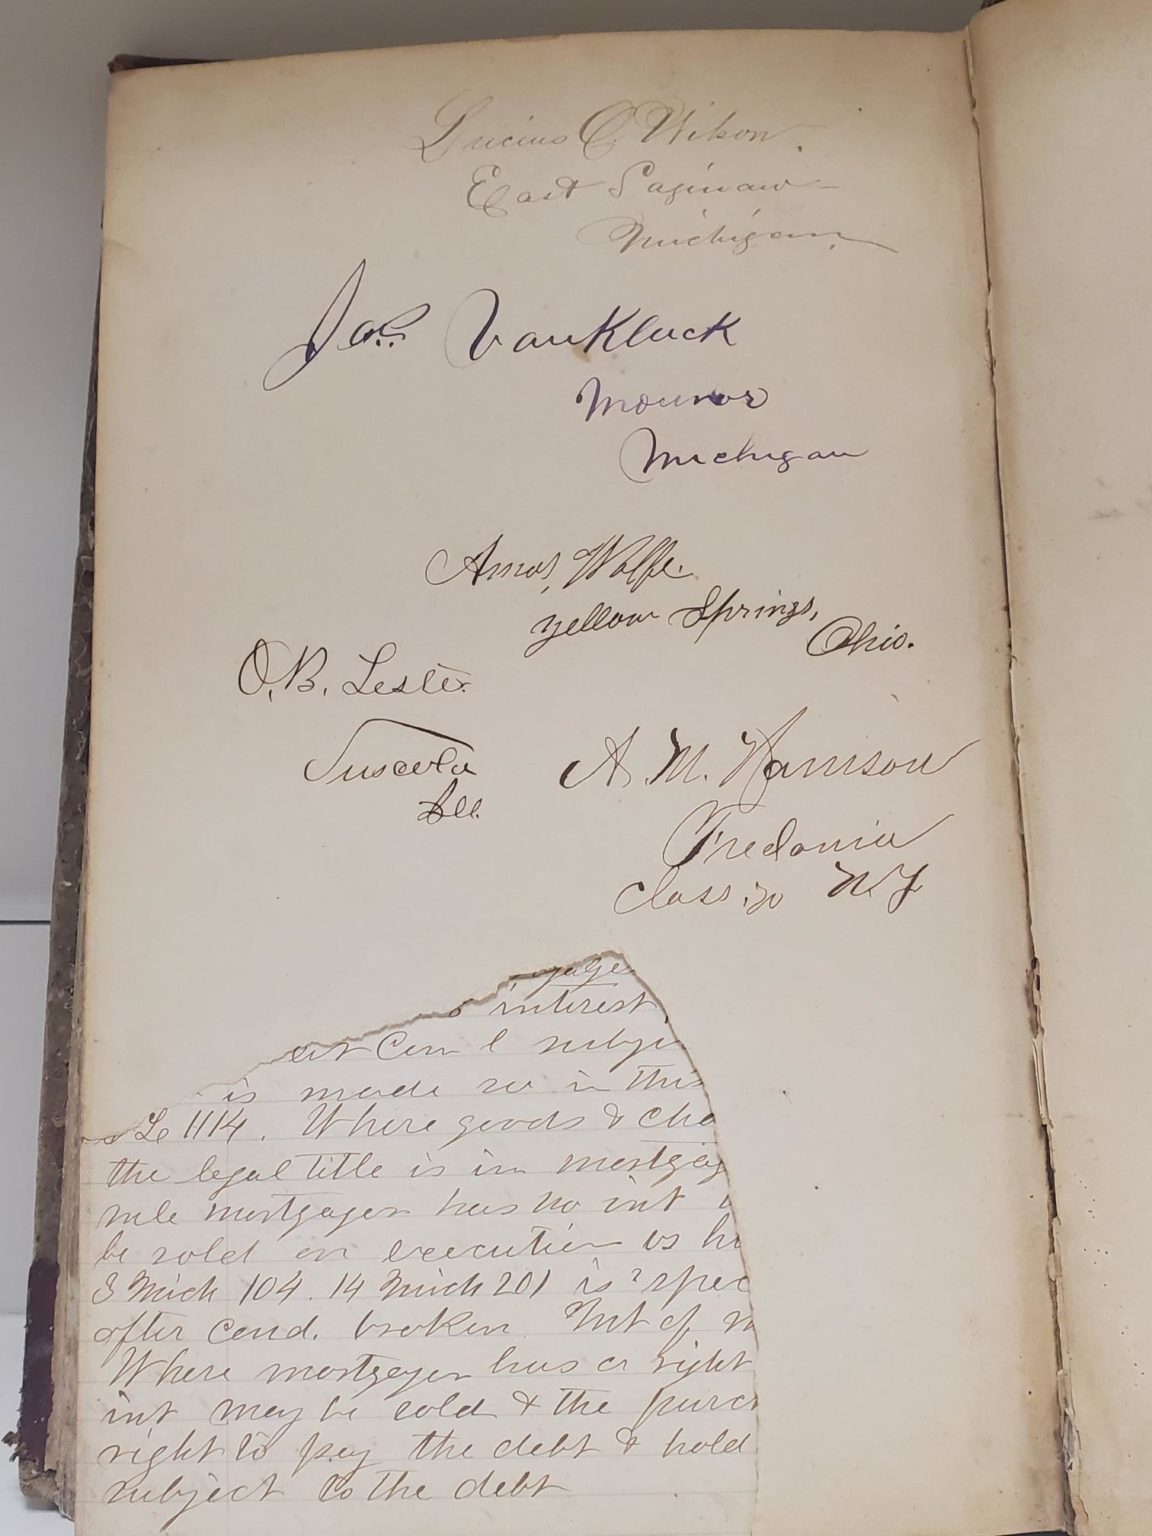 Lucius C. Wilson.
East Saginaw
Michigan.
Jas. VanKluck
Monroe
Michigan
Amos, Wolfe.
Yellow Springs,
Ohio.
O. B. Lester
Tuscola
Ill.
A. M. Harrison
Fredonia
Class. '70 N.Y
gage
interest,
Con l subje
is made so in this
Le 1114. Where goods & cha
the legal title is in mortgag
rule mortgagor has no int
be sold on execution vs
3 Mich 104. 14 Mich 201 is? spec
after cond. broken. Int of m
Where mortgagor has a right
int may be sold & the purch
right to pay the debt & hold
subject to the debt